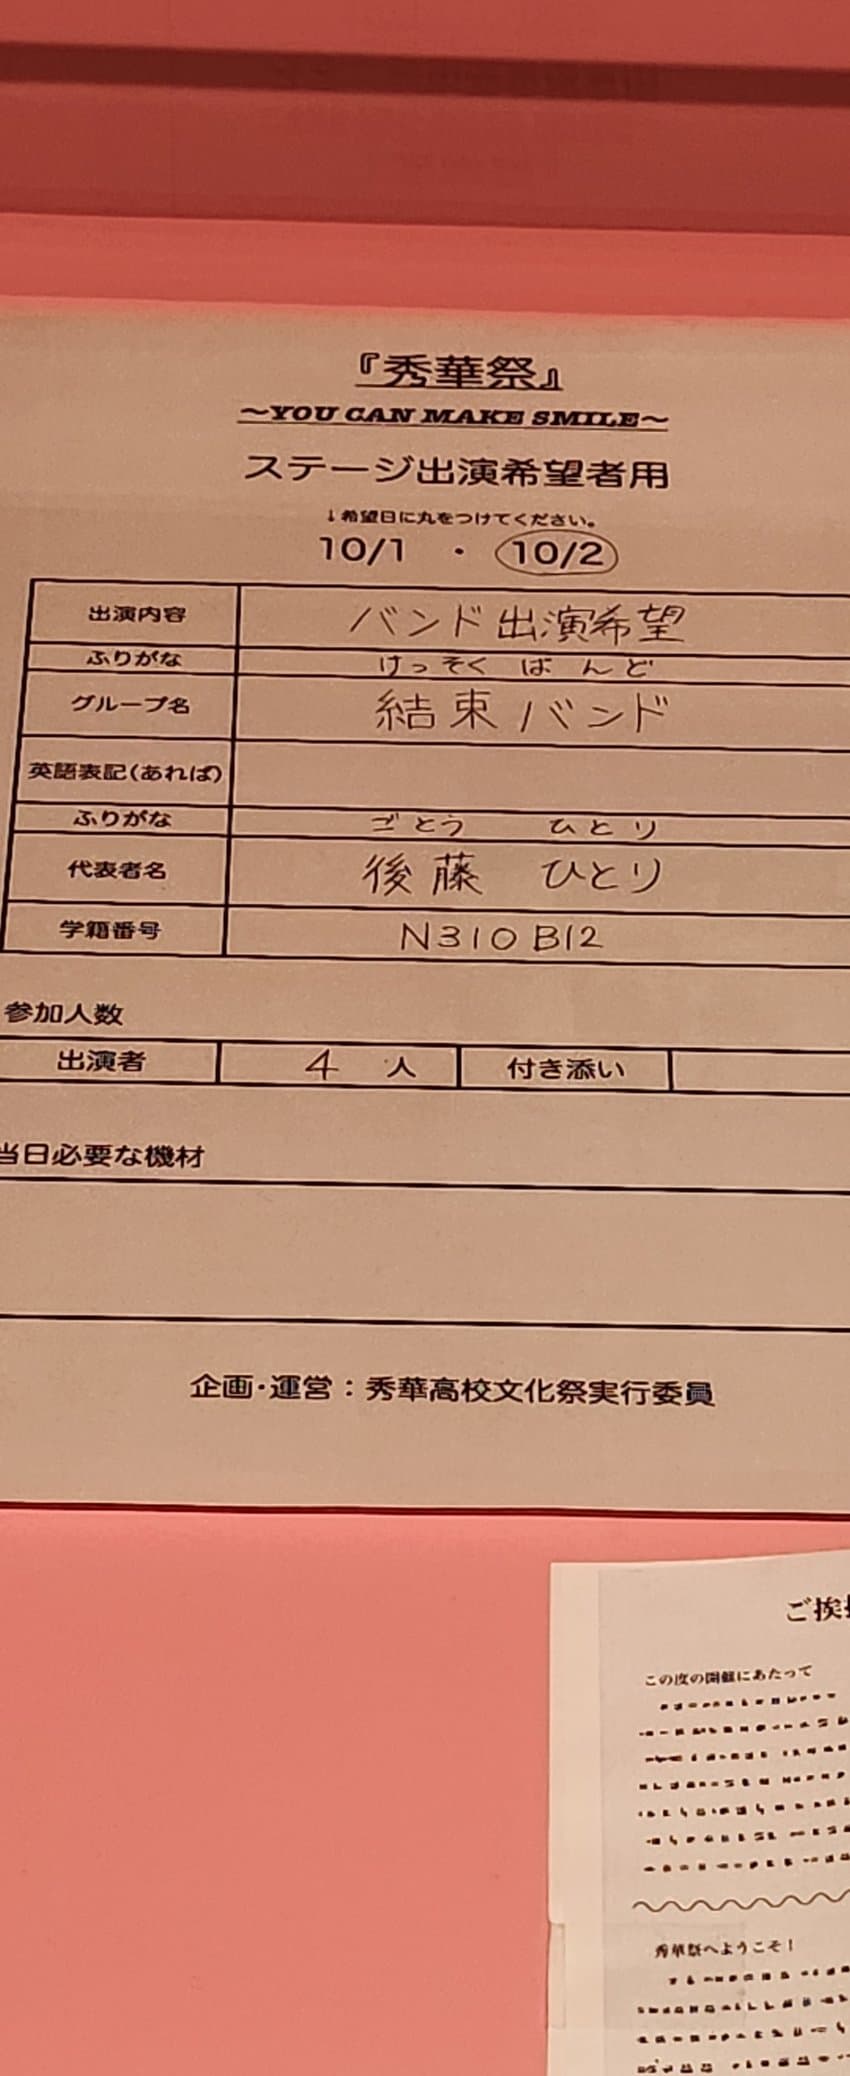 『秀華祭』
～YOU CAN MAKE SMILE～
ステージ出演希望者用
↓希望日に丸をつけてください。
10/1 ・ 10/2
出演内容 バンド出演希望
ふりがな けっそく ばんど
グループ名 結束バンド
英語表記(あれば)
ふりがな ごとう ひとり
代表者名 後藤 ひとり
学籍番号 N310B12
参加人数
出演者 4 人 付き添い
当日必要な機材
企画・運営：秀華高校文化祭実行委員
ご挨
この度の開催にあたって
秀華祭へようこそ！